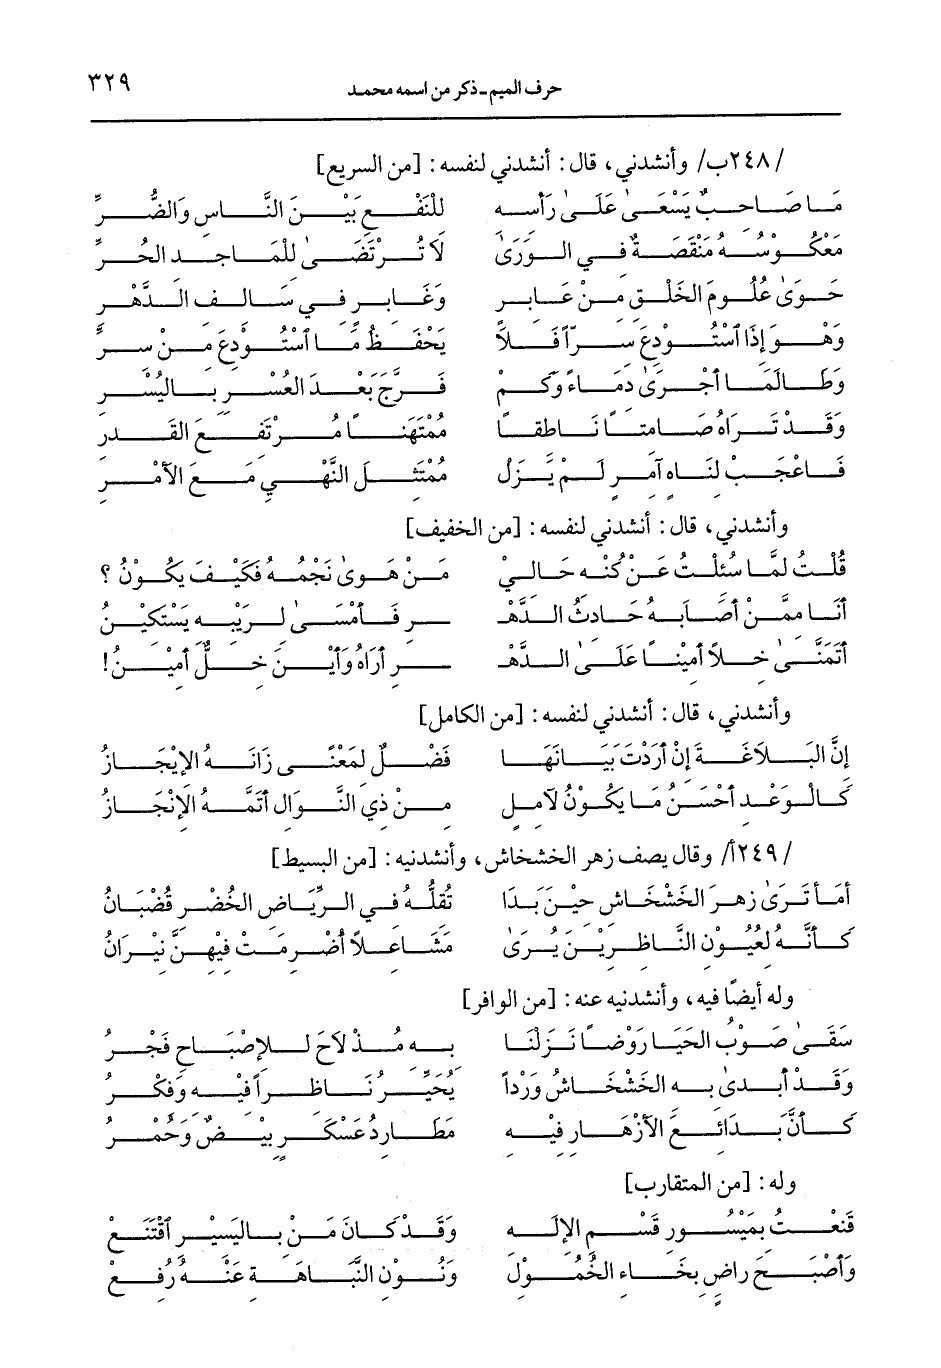 حرف الميم - ذكر من اسمه محمد ٣٢٩
/٢٤٨ب/ وأنشدني، قال: أنشدني لنفسه: [من السريع]
مَا صَاحبٌ يَسْعَى عَلَى رَأسه للنَفْعِ بَيْنَ النَّاس وَالضُّرِّ
مَعكُوسُهُ مَنْقَصَةٌ في الوَرَىٰ لاَ تُرْتَضَىٰ للْمَاجد الحُرِّ
حَوَىٰ عُلُومَ الخَلْقِ مِنْ عَابر وَغَابرٍ في سَالف الدَّهْر
وَهْوَ إذَا اسْتُودعَ سرّاً فَلاَ يَحْفَظُ مَا اسْتُودعَ مِنْ سرِّ
وَطَالَمَا أجْرَىٰ دمَاءً وَكَمْ فَرَّجَ بَعْدَ العُسْر بِاليُسْر
وَقَدْ تَرَاهُ صَامتاً نَاطقاً مُمْتَهَناً مُرْتَفعَ القَدر
فَاعْجَبْ لنَاهٍ آمرٍ لَمْ يَزَلْ مُمْتَثلَ النَّهْي مَعَ الأمْر
وأنشدني، قال: أنشدني لنفسه: [من الخفيف]
قُلْتُ لمَّا سُئلْتُ عَنْ كُنْه حَالي مَنْ هَوىٰ نَجْمُهُ فَكَيْفَ يَكُوْنُ؟
أنَا ممَّنْ أصَابَهُ حَادثُ الدَّهْـ ـر فَأمْسَىٰ لرَيْبه يَسْتَكيْنُ
أتَمَنَّىٰ خلاًّ أميْناً عَلَى الدَّهْـ ـر أرَاهُ وَأيْنَ خلٌّ أميْنُ!
وأنشدني، قال: أنشدني لنفسه: [من الكامل]
إنَّ البَلاَغَةَ إنْ أرَدْتَ بَيَانَهَا فَضْلٌ لمَعْنًى زَانَهُ الإيْجَازُ
كَالوَعْد أحْسَنُ مَا يَكُوْنُ لآملٍ مِنْ ذي النَّوَال أتَمَّهُ الإنْجَازُ
/٢٤٩أ/ وقال يصف زهر الخشخاش، وأنشدنيه: [من البسيط]
أمَا تَرَىٰ زهرَ الخَشْخَاش حيْنَ بَدَا تُقلُّهُ في الرِّيَاض الخُضْر قُضْبَانُ
كَأنَّهُ لعُيُوْن النَّاظريْنَ يُرَىٰ مَشَاعلاً أضْرمَتْ فيْهنَّ نيْرَانُ
وله أيضاً فيه، وأنشدنيه عنه: [من الوافر]
سَقَىٰ صَوْبُ الحَيَا رَوْضاً نَزَلْنَا به مُذْ لاَحَ للإصْبَاح فَجْرُ
وَقَدْ أبدىٰ به الخَشْخَاشُ وَرْداً يُحَيِّرُ نَاظراً فيْه وَفكْرُ
كَأنَّ بَدَائعَ الأزْهَار فيْه مَطَاردُ عَسْكَرٍ بيْضٌ وَحُمْرُ
وله: [من المتقارب]
قَنعْتُ بمَيْسُور قَسْم الإلَه وَقَدْ كَانَ مَنْ بالْيَسيْر اقْتَنَعْ
وَأصْبَحَ راضٍ بخَاء الخُمُوْل وَنُوْن النَّبَاهَةِ عَنْهُ رُفعْ